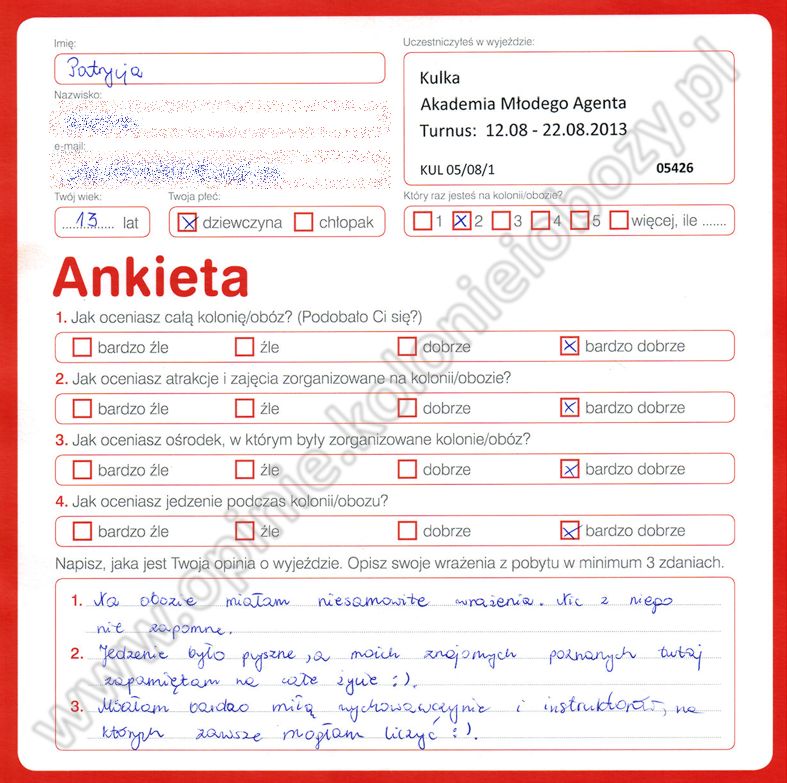 Imię:
Patrycja
Nazwisko:
e-mail:
Twój wiek:
13 lat
Twoja płeć:
dziewczyna chłopak
Uczestniczyłeś w wyjeździe:
Kulka
Akademia Młodego Agenta
Turnus: 12.08 - 22.08.2013
KUL 05/08/1 05426
Który raz jesteś na kolonii/obozie?
1 2 3 4 5 więcej, ile .......
Ankieta
1. Jak oceniasz całą kolonię/obóz? (Podobało Ci się?)
bardzo źle źle dobrze bardzo dobrze
2. Jak oceniasz atrakcje i zajęcia zorganizowane na kolonii/obozie?
bardzo źle źle dobrze bardzo dobrze
3. Jak oceniasz ośrodek, w którym były zorganizowane kolonie/obóz?
bardzo źle źle dobrze bardzo dobrze
4. Jak oceniasz jedzenie podczas kolonii/obozu?
bardzo źle źle dobrze bardzo dobrze
Napisz, jaka jest Twoja opinia o wyjeździe. Opisz swoje wrażenia z pobytu w minimum 3 zdaniach.
1. Na obozie miałam niesamowite wrażenia. Nic z niego
nie zapomnę.
2. Jedzenie było pyszne, a moich znajomych poznanych tutaj
zapamiętam na całe życie :).
3. Miałam bardzo miłą wychowawczynie i instruktorów, na
których zawsze mogłam liczyć :).
www.opinie.kolonieiobozy.pl